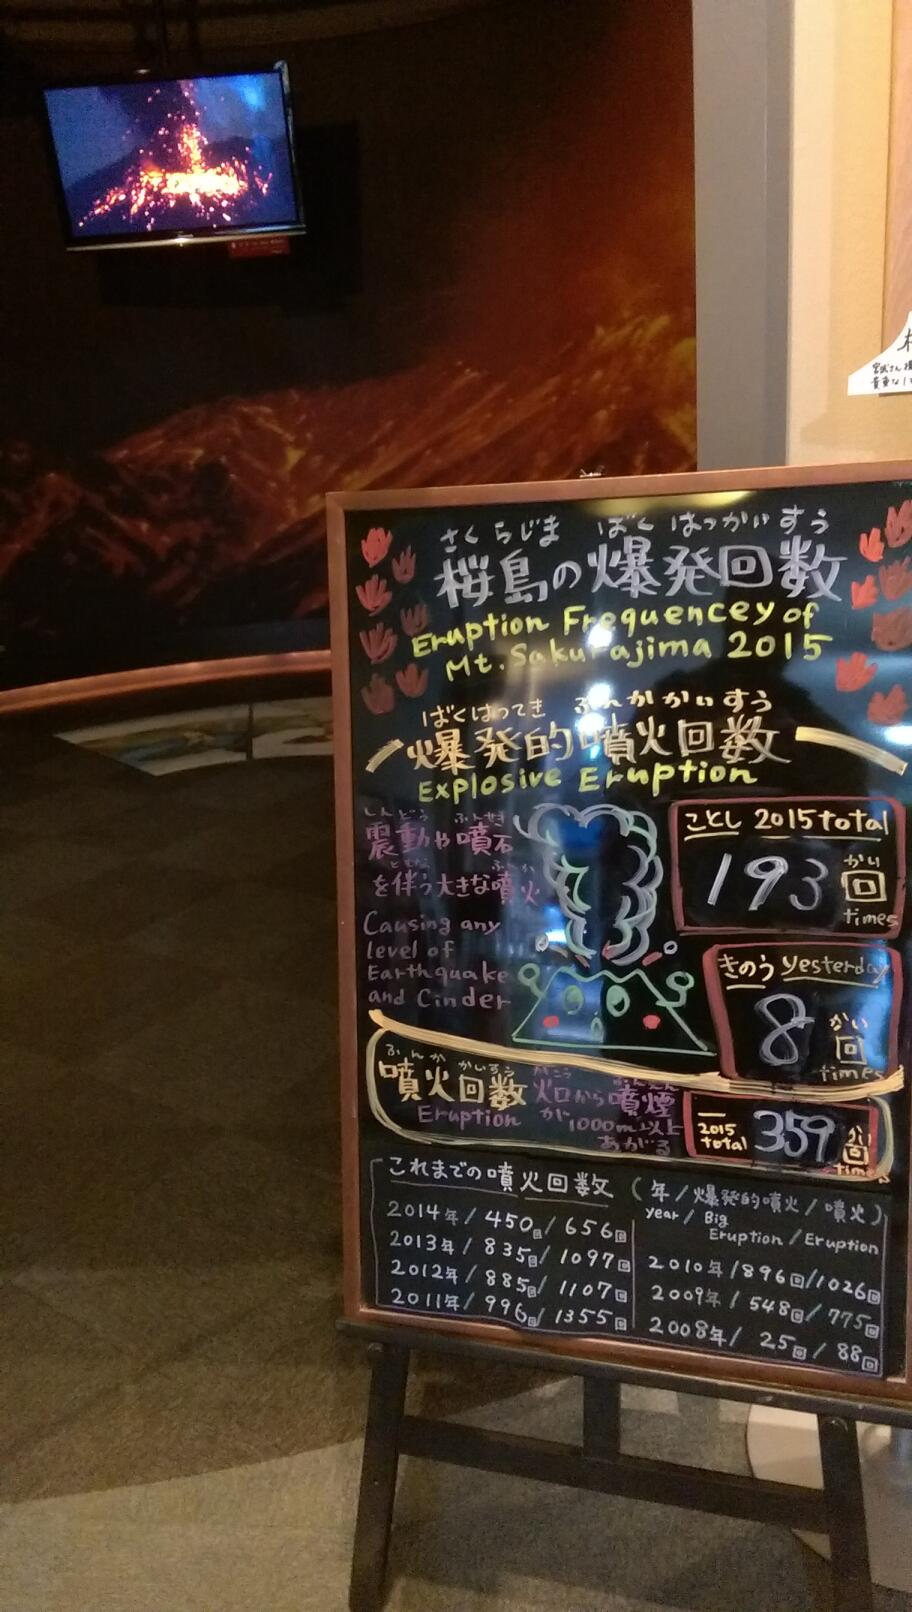 さくらじま ばくはつかいすう
桜島の爆発回数
Eruption Frequencey of
Mt. Sakurajima 2015
ばくはつてき ふんかかいすう
爆発的噴火回数
Explosive Eruption
しんどう ふんせき
震動や噴石
ともな ふんか
を伴う大きな噴火
Causing any
level of
Earthquake
and Cinder
ことし 2015 total
193 かい
回
times
きのう yesterday
8 かい
回
times
ふんか かいすう
噴火回数
Eruption
かこう ふんえん
火口から噴煙
が 1000m以上
あがる
2015
total
359 かい
回
time
これまでの噴火回数 (年/爆発的噴火/噴火)
year/ Big
Eruption / Eruption
2014年/450回/656回
2013年/835回/1097回
2012年/885回/1107回
2011年/996回/1355回
2010年/896回/1026回
2009年/548回/775回
2008年/25回/88回